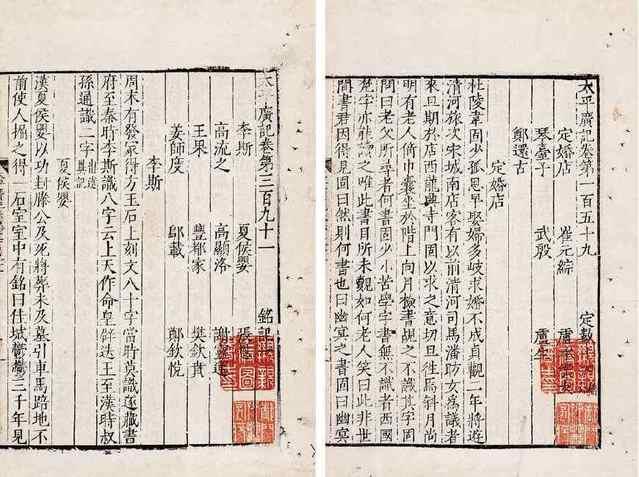 太平廣記卷第一百五十九 定數
定婚店 崔元綜 盧承業女
琴臺子 武殷 盧生
鄭還古
定婚店
杜陵韋固少孤思早娶婦多岐求婚不成貞觀二年將遊
清河旅次宋城南店客有以前清河司馬潘昉女為議者
來旦期於店西龍興寺門固以求之意切旦往焉斜月尚
明有老人倚巾囊坐於階上向月檢書覘之不識其字固
問曰老父所尋者何書固少小苦學字書無不識者西國
梵字亦能讀之唯此書目所未覿如何老人笑曰此非世
間書君因得見固曰然則何書也曰幽冥之書固曰幽冥
太平廣記卷第三百九十一 銘記
李斯 夏侯嬰 張恩
高流之 高顯洛 謝靈運
王果 豐都冢 樊欽賁
姜師度 鄔載 鄭欽悅
李斯
周末有發冢得方玉石上刻文八十字當時莫識遂藏書
府至秦時李斯識八字云上天作命皇辟迭王至漢時叔
孫通識二字 出述異記
夏侯嬰
漢夏侯嬰以功封滕公及死將葬未及墓引車馬路地不
前使人掘之得一石室室中有銘曰佳城鬱鬱三千年見